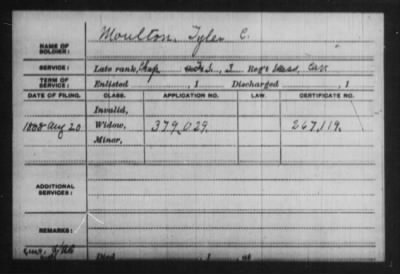 NAME OF SOLDIER: Moulton, Tyler C.
SERVICE: Late rank, Chap F. S., 3 Reg't Mass, Cav
TERM OF SERVICE: Enlisted , 1 Discharged , 1
DATE OF FILING. CLASS. APPLICATION NO. LAW. CERTIFICATE NO.
Invalid,
1888 Aug 20 Widow, 379,029. 267,119.
Minor,
ADDITIONAL SERVICES:
REMARKS:
Died , 1 , at